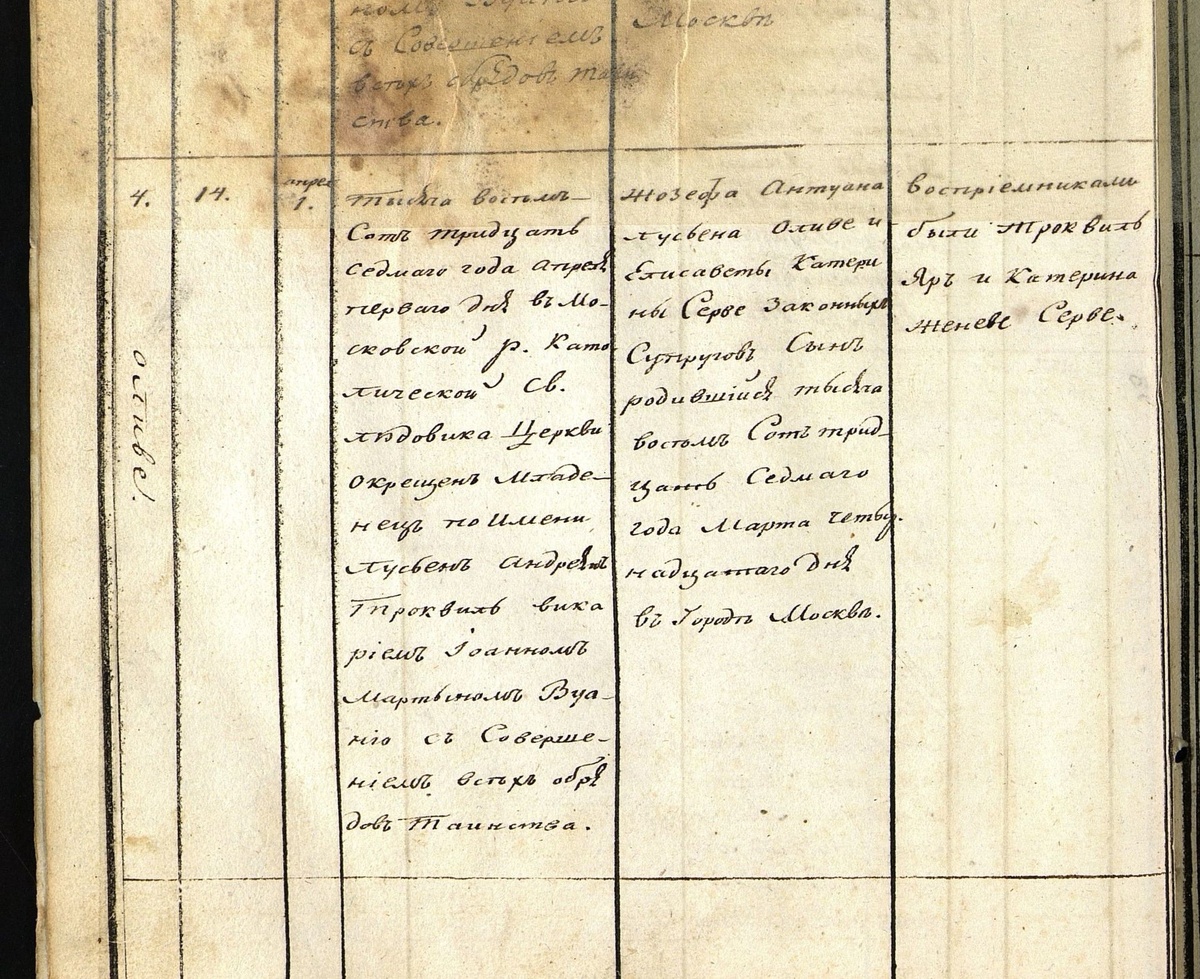 съ Совершеніемъ
всѣхъ обрядовъ таин
ства.
Москвѣ
4.
14.
апрел
1.
Оливе.
тысяча восемь
Сотъ тридцать
седмаго года апреля
перваго дня въ Мо-
сковской р. Като
лической Св.
людовика Церкви
окрещенъ Младе-
нецъ по имени
лусьенъ андреянъ
Троквиль вика
ріемъ Іоанномъ
Мартыномъ Вуа-
нію съ Соверше-
ніемъ всѣхъ обря
довъ Таинства.
Жозефа Антуана
лусьена Оливе и
Елисаветы Катери
ны Серве Законныхъ
Супруговъ Сынъ
родившійся тысяча
восемъ Сотъ трид-
цать Седмаго
года Марта четыр.
надцатаго дня
въ Городѣ Москвѣ.
воспріемниками
были Троквиль
Яръ и Катерина
женеве Серве.